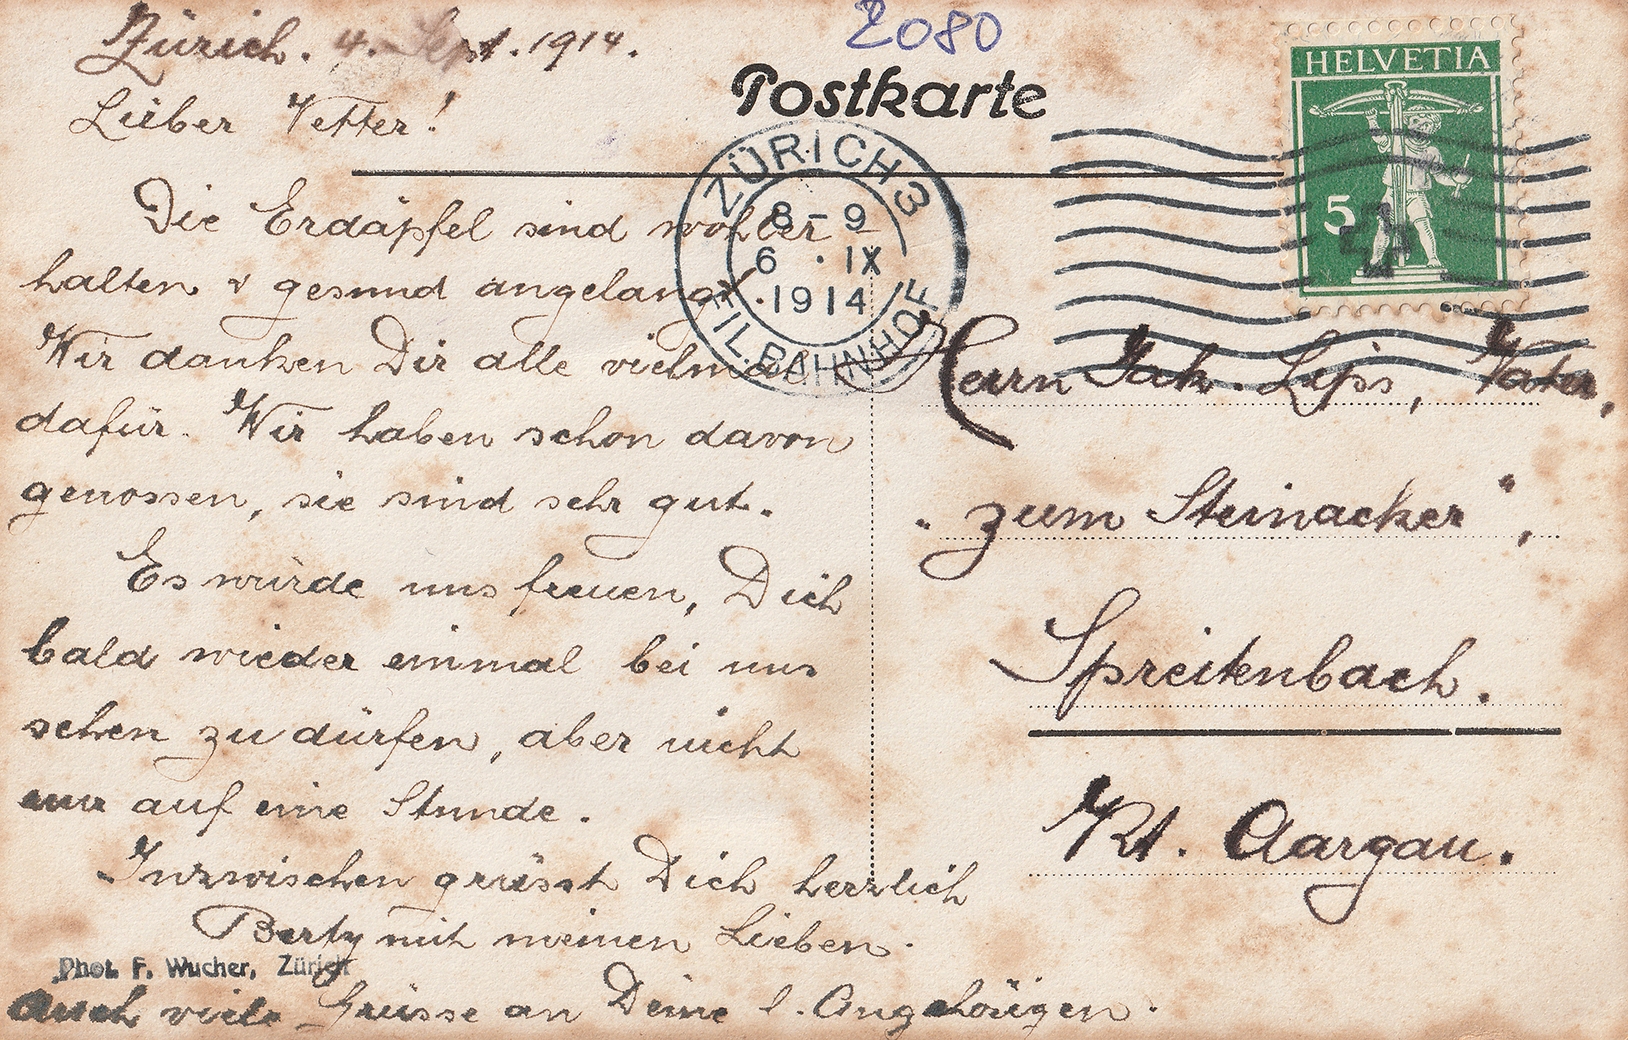 Zürich. 4. Sept. 1914.
2080
Postkarte
HELVETIA
5
Lieber Vetter!
ZÜRICH 3
8-9
6 · IX
·1914
FIL. BAHNHOF
Die Erdäpfel sind wohler
halten & gesund angelangt.
Wir danken Dir alle vielmal
dafür. Wir haben schon davon
genossen, sie sind sehr gut.
Es würde uns freuen, Dich
bald wieder einmal bei uns
sehen zu dürfen, aber nicht
nur auf eine Stunde.
Inzwischen grüsst Dich herzlich
Berty mit meinen Lieben.
Phot. F. Wucher, Zürich
Auch viele Grüsse an Deine l. Angehörigen.
Herrn Jak. Lips, Vater,
"zum Steinacker",
Spreitenbach.
Kt. Aargau.